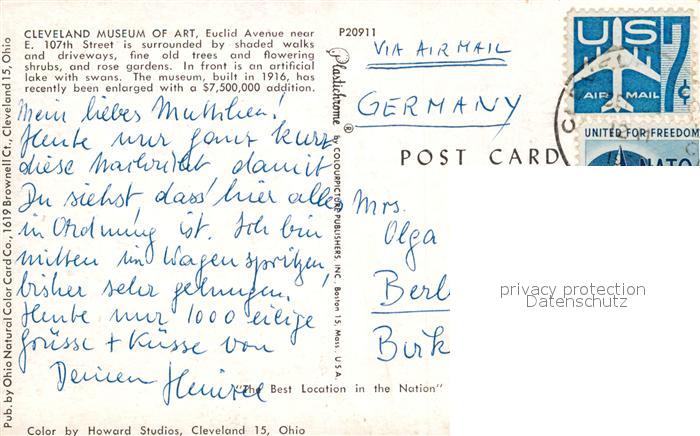 CLEVELAND MUSEUM OF ART, Euclid Avenue near
E. 107th Street is surrounded by shaded walks
and driveways, fine old trees and flowering
shrubs, and rose gardens. In front is an artificial
lake with swans. The museum, built in 1916, has
recently been enlarged with a $7,500,000 addition.
Mein liebes Muttilein!
Heute nur ganz kurz
diese Nachricht damit
Du siehst dass hier alles
in Ordnung ist. Ich bin
mitten im Wagen spritzen,
bisher sehr gelungen!
Heute nur 1000 eilige
Grüsse + Küsse von
Deinem
Color by Howard Studios, Cleveland 15, Ohio
Pub. by Ohio Natural Color Card Co., 1619 Brownell Ct., Cleveland 15, Ohio
Plastichrome ® by COLOURPICTURE PUBLISHERS, INC. Boston 15, Mass., U.S.A.
P20911
VIA AIR MAIL
GERMANY
POST CARD
Mrs.
Olga
Berl
Birk
"The Best Location in the Nation"
US
7¢
AIR MAIL
UNITED FOR FREEDOM
NATO
privacy protection
Datenschutz